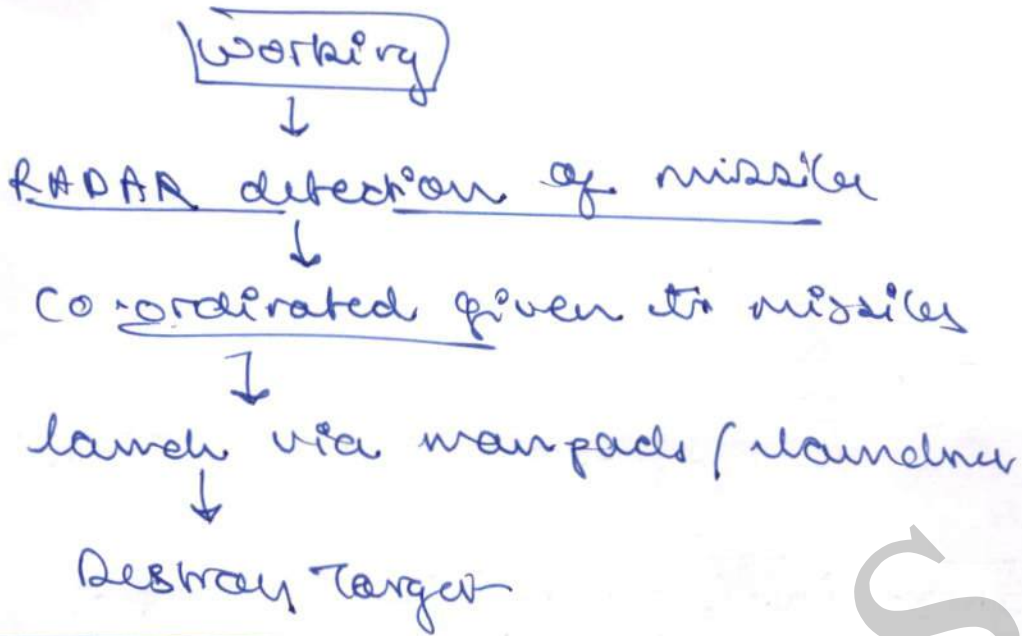 Working
↓
RADAR detection of missile
↓
Co-ordinated given to missiles
↓
launch via manpads / launcher
↓
Destroy Target